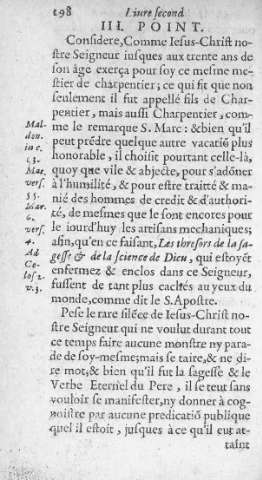 198 Liure second
III. POINT.
Considere, Comme Iesus-Christ no-
stre Seigneur iusques aux trente ans de
son âge exerça pour soy ce mesme me-
stier de charpentier; ce qui fit que non
seulement il fut appellé fils de Char-
pentier, mais aussi Charpentier, com-
me le remarque S. Marc: & bien qu'il
peut prẽdre quelque autre vacatiõ plus
honorable, il choisit pourtant celle-là,
quoy que vile & abjecte, pour s'adõner
à l'humilité, & pour estre traitté & ma-
nié des hommes de credit & d'authori-
té, de mesmes que le sont encores pour
le iourd'huy les artisans mechaniques;
afin, qu'en ce faisant, Les thresors de la sa-
gesse & de la science de Dieu, qui estoyẽt
enfermez & enclos dans ce Seigneur,
fussent de tant plus cachés au yeux du
monde, comme dit le S. Apostre.
Pese le rare silẽce de Iesus-Christ no-
stre Seigneur qui ne voulut durant tout
ce temps faire aucune monstre ny para-
de de soy-mesme; mais se taire, & ne di-
re mot, & bien qu'il fut la sagesse & le
Verbe Eternel du Pere, il se teut sans
vouloir se manifester, ny donner à cog-
noistre par aucune predicatiõ publique
quel il estoit, jusques à ce qu'il eut at-
taint
Mal-
don.
in c.
13.
Mat.
vers.
55.
Mar.
6.
vers.
4.
Ad
Co-
los 2.
v. 3.